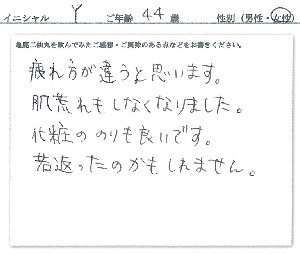 イニシャル Y ご年齢 44 歳 性別（男性・女性）
亀鹿二仙丸を飲んでみたご感想・ご興味のある点などをお書きください。
疲れ方が違うと思います。
肌荒れもしなくなりました。
化粧ののりも良いです。
若返ったのかもしれません。